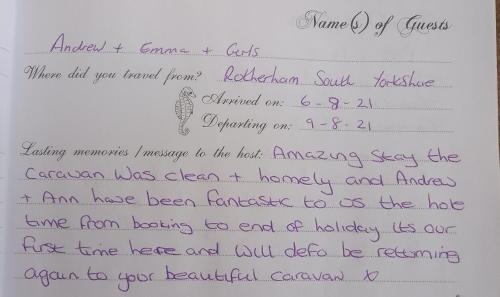 Name(s) of Guests
Andrew + Emma + Girls
Where did you travel from? Rotherham South Yorkshire
Arrived on: 6-8-21
Departing on: 9-8-21
Lasting memories / message to the host: Amazing stay the
caravan was clean + homely and Andrew
+ Ann have been fantastic to us the hole
time from booking to end of holiday its our
first time here and will defo be returning
again to your beautiful caravan x